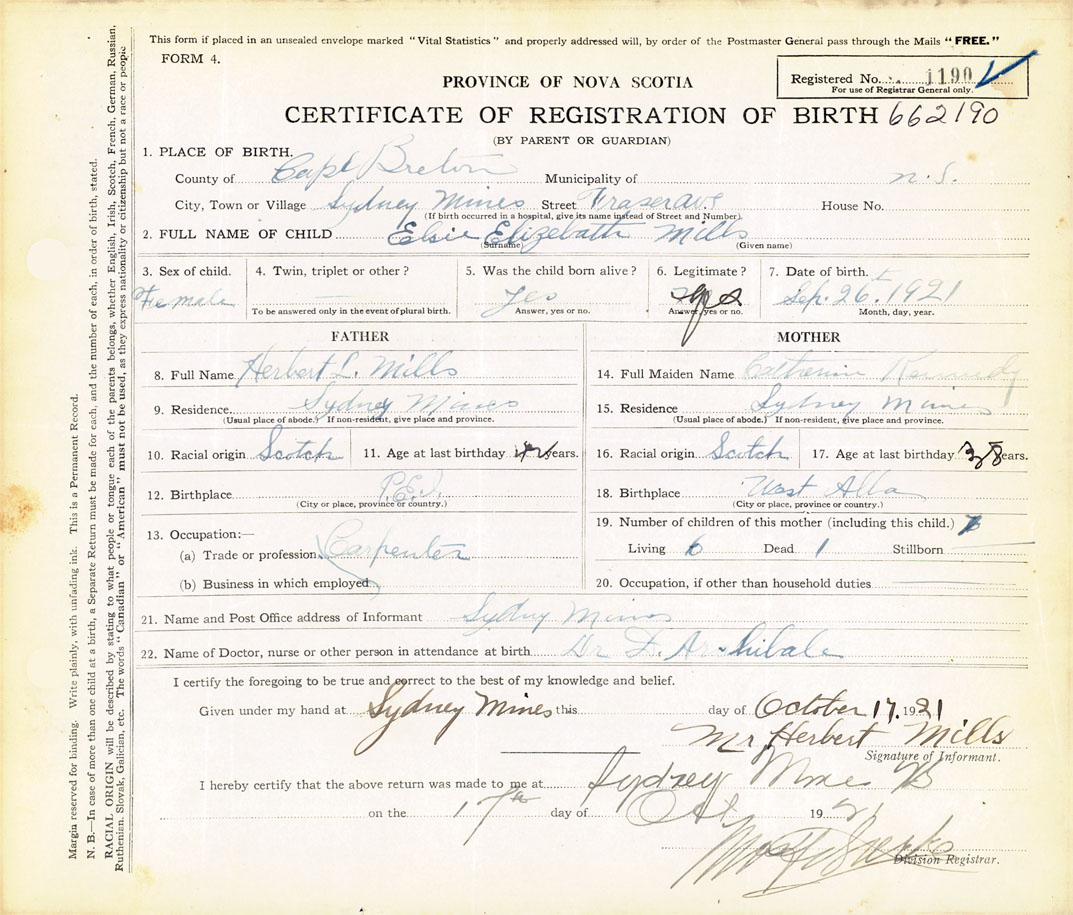 This form if placed in an unsealed envelope marked "Vital Statistics" and properly addressed will, by order of the Postmaster General pass through the Mails "FREE."
FORM 4.
Registered No. 1190
For use of Registrar General only.
PROVINCE OF NOVA SCOTIA
CERTIFICATE OF REGISTRATION OF BIRTH 662190
(BY PARENT OR GUARDIAN)
1. PLACE OF BIRTH.
County of Cape Breton Municipality of N.S.
City, Town or Village Sydney Mines Street Fraser Ave House No.
(If birth occurred in a hospital, give its name instead of Street and Number).
2. FULL NAME OF CHILD Elsie Elizebath Mills
(Surname) (Given name)
3. Sex of child. 4. Twin, triplet or other? 5. Was the child born alive? 6. Legitimate? 7. Date of birth.
Female Yes yes Sept. 26. 1921
To be answered only in the event of plural birth. Answer, yes or no. Answer, yes or no. Month, day, year.
FATHER
8. Full Name Herbert L. Mills
9. Residence Sydney Mines
(Usual place of abode.) If non-resident, give place and province.
10. Racial origin Scotch 11. Age at last birthday years.
12. Birthplace P.E.I.
(City or place, province or country.)
13. Occupation:—
(a) Trade or profession Carpenter
(b) Business in which employed
MOTHER
14. Full Maiden Name Catherine Kennedy
15. Residence Sydney Mines
(Usual place of abode.) If non-resident, give place and province.
16. Racial origin Scotch 17. Age at last birthday 38 years.
18. Birthplace West Alba
(City or place, province or country.)
19. Number of children of this mother (including this child.) 7
Living 6 Dead 1 Stillborn
20. Occupation, if other than household duties
21. Name and Post Office address of Informant Sydney Mines
22. Name of Doctor, nurse or other person in attendance at birth Dr D. Archibald
I certify the foregoing to be true and correct to the best of my knowledge and belief.
Given under my hand at Sydney Mines this day of October 17. 1921
Mr Herbert Mills
Signature of Informant.
I hereby certify that the above return was made to me at Sydney Mines
on the 17th day of Oct 1921
Division Registrar.
Margin reserved for binding. Write plainly, with unfading ink. This is a Permanent Record.
N. B.—In case of more than one child at a birth, a Separate Return must be made for each, and the number of each, in order of birth, stated.
RACIAL ORIGIN will be described by stating to what people or tongue each of the parents belongs, whether English, Irish, Scotch, French, German, Russian,
Ruthenian, Slovak, Galician, etc. The words "Canadian" or "American" must not be used, as they express nationality or citizenship but not a race or people